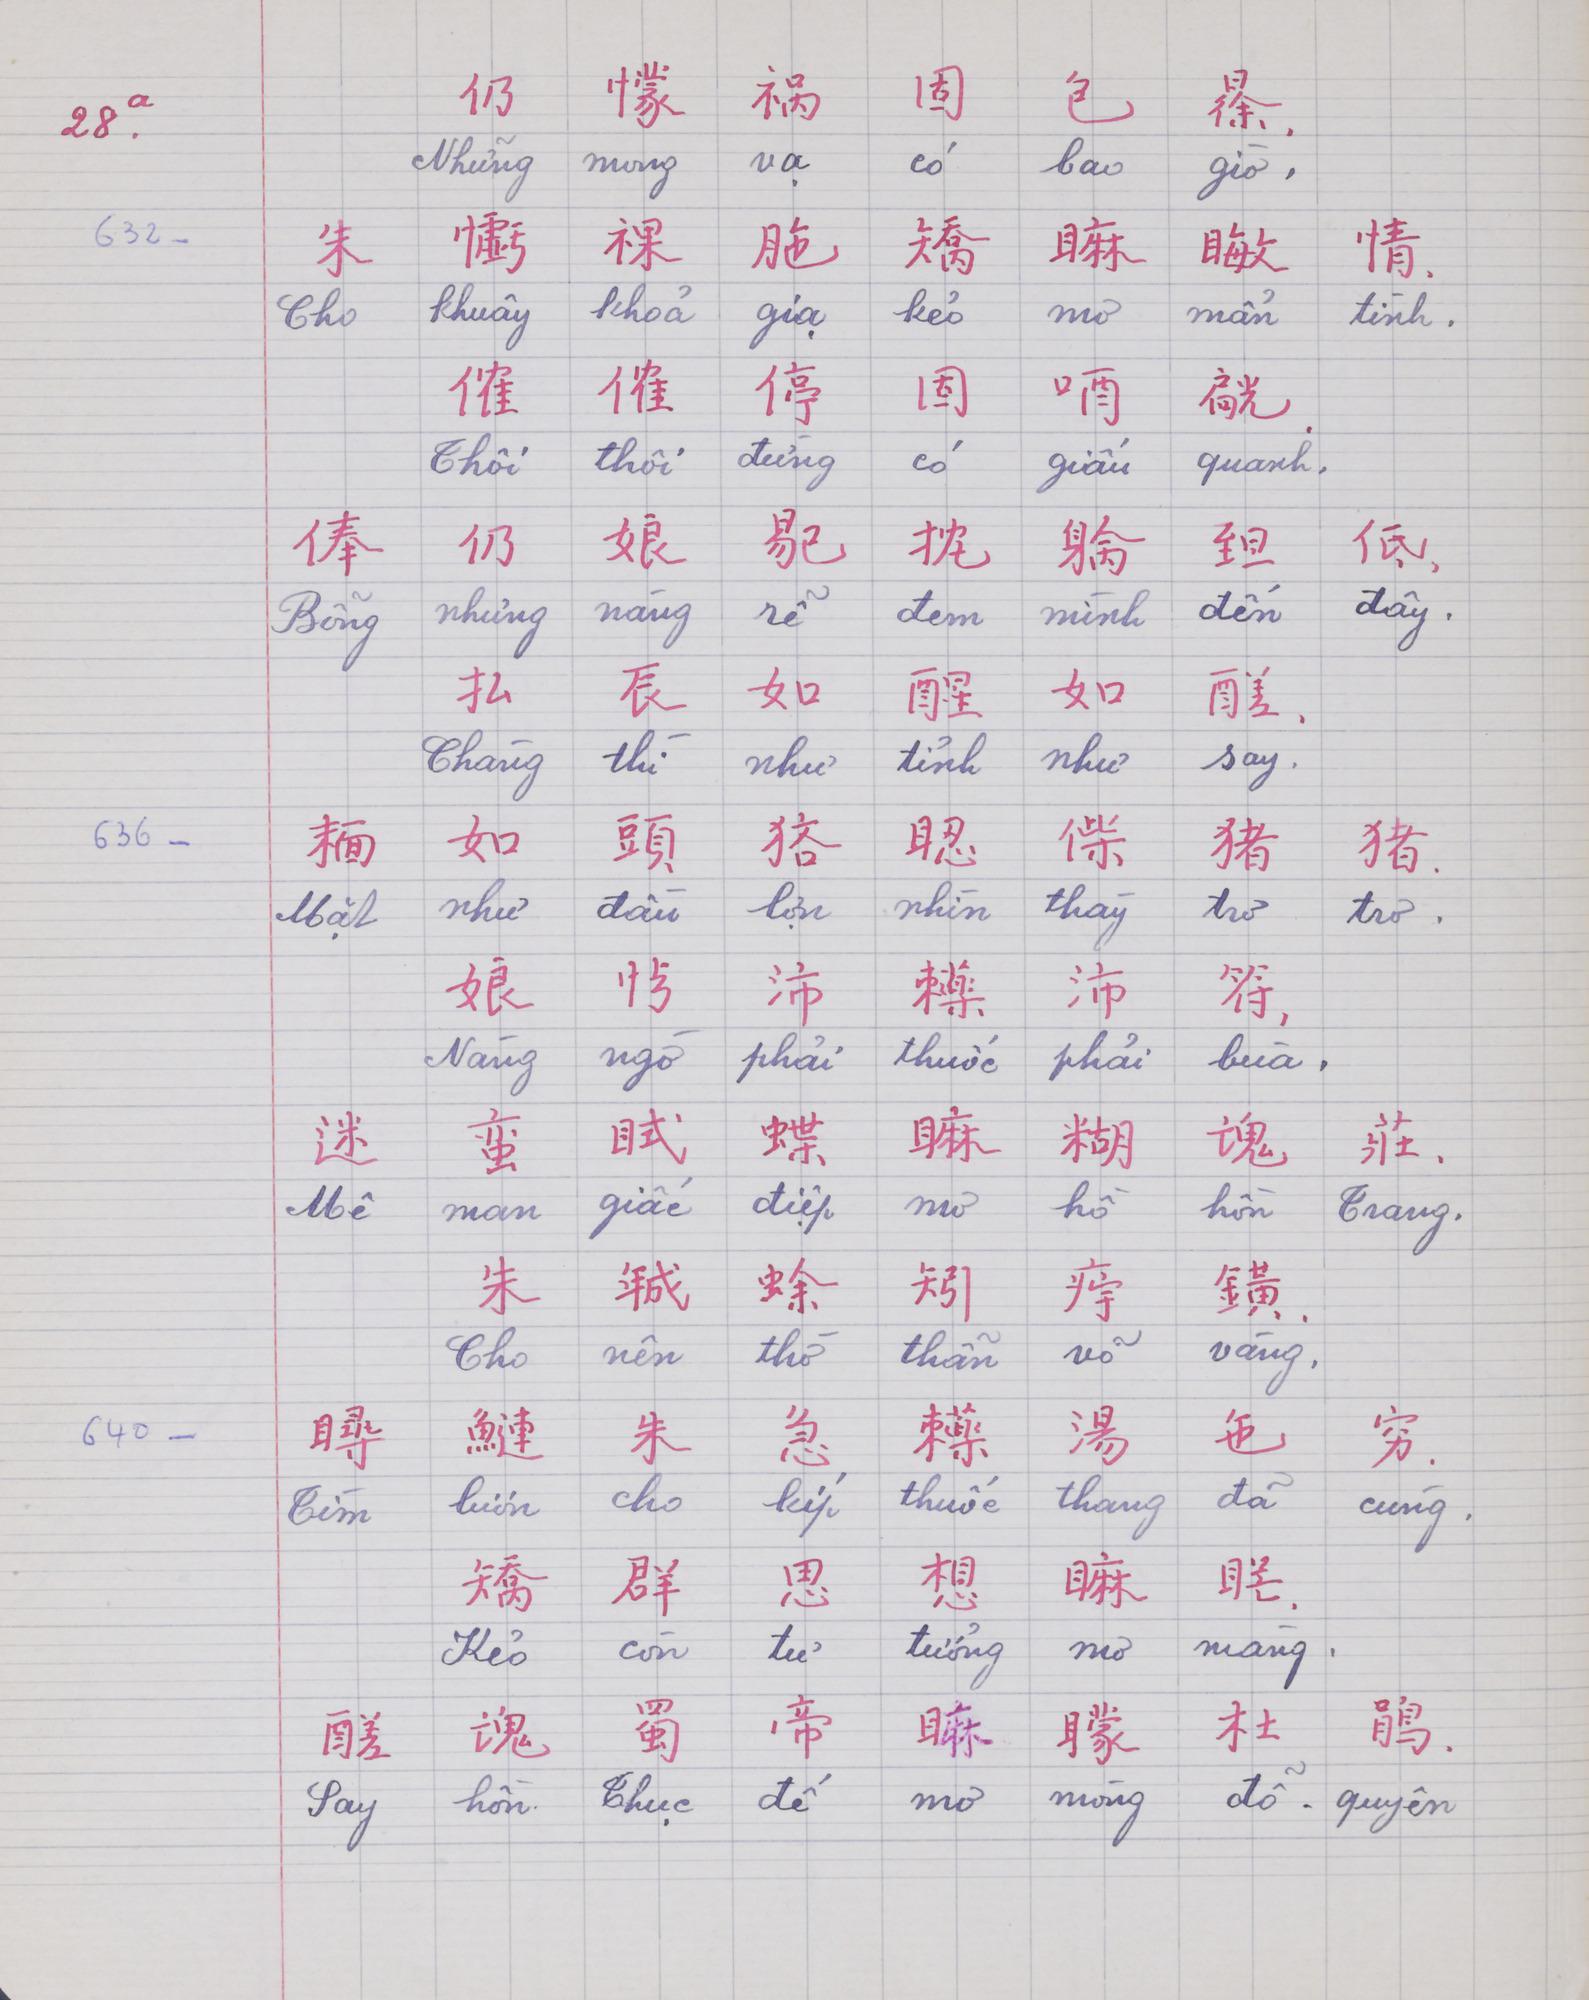 28.a
仍 懞 祸 固 包 𣇞.
Những mong vạ có bao giờ.
632 –
朱 𢠐 裸 胣 矯 𥊚 𥊀 情.
Cho khuây khoả giạ kẻo mơ mẩn tình.
傕 傕 停 固 唒 觥.
Thôi thôi đừng có giấu quanh.
俸 仍 娘 抌 躺 𦤾 低.
Bỗng nhưng nàng rễ đem mình đến đây.
払 辰 如 醒 如 醝.
Chàng thì như tỉnh như say.
636 –
𩈘 如 頭 㹯 偨 猪 猪.
Mặt như đầu lợn nhìn thày trơ trơ.
娘 沛 沛 符.
Nàng ngờ phải thuốc phải bùa.
迷 蛮 眓 蝶 𥊚 糊 魂 莊.
Mê man giấc điệp mơ hồ hồn Trang.
朱 𢧚 蜍 矧 㾇 鐄.
Cho nên thờ thẫn võ vàng.
640 –
朱 急 湯 㐌 穷.
Tìm luôn cho kíp thuốc thang đã cùng.
矯 群 思 想 𥊚 𥆄.
Kẻo còn tư tưởng mơ màng.
醝 魂 蜀 帝 𥊚 矇 杜 鹃.
Say hồn Thục đế mơ mòng đỗ. quyên